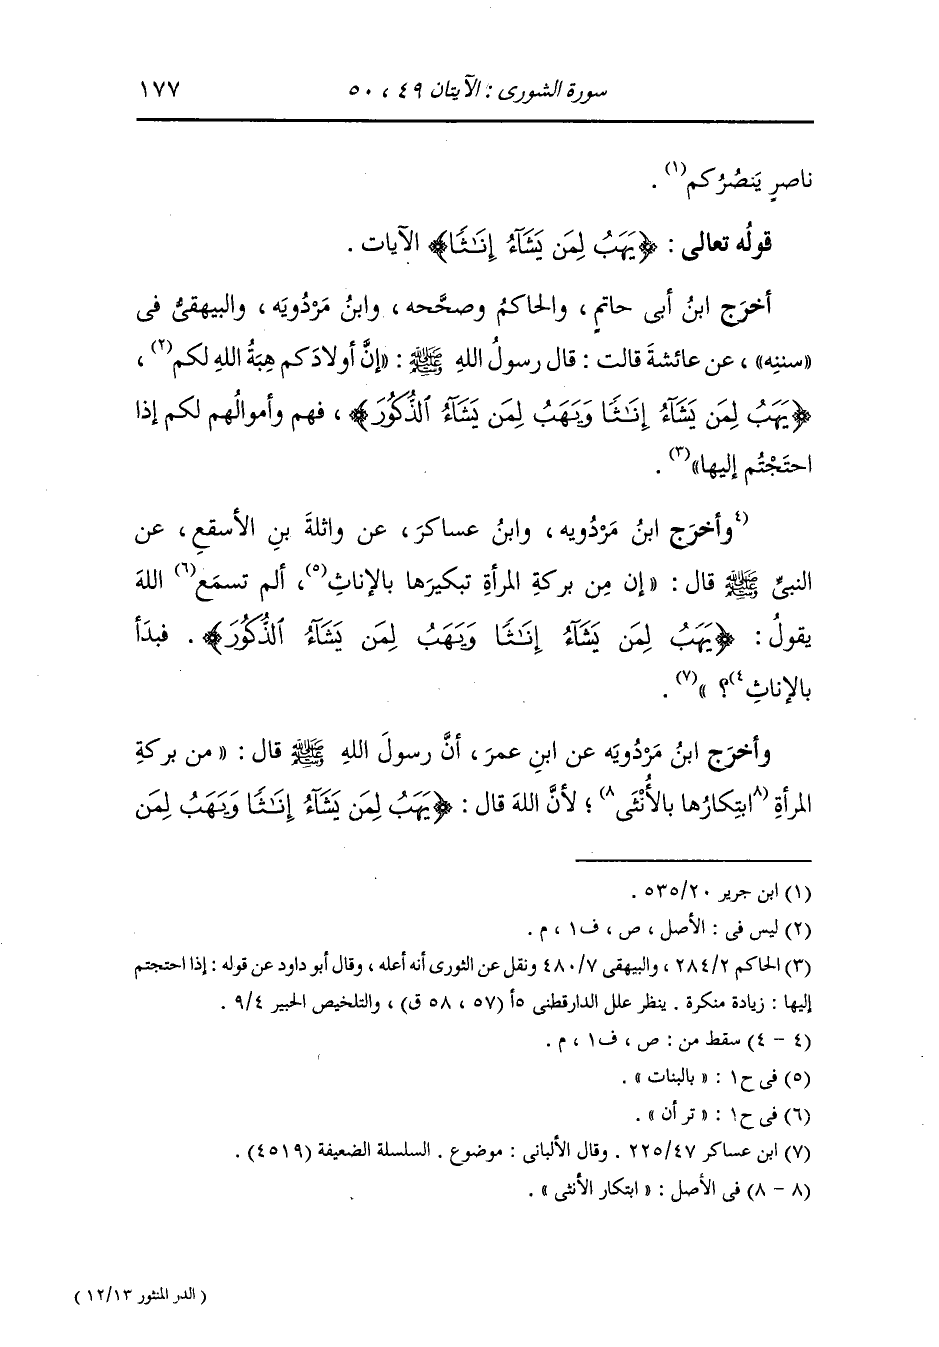 سورة الشورى : الآيتان ٤٩ ، ٥٠ ١٧٧
ناصرٍ يَنصُرُكم(١) .
قولُه تعالى : ﴿يَهَبُ لِمَن يَشَآءُ إِنَٰثًا﴾ الآيات .
أخرَج ابنُ أبى حاتمٍ ، والحاكمُ وصحَّحه ، وابنُ مَرْدُويَه ، والبيهقىُّ فى
«سننِه» ، عن عائشةَ قالت : قال رسولُ اللهِ ﷺ : «إنَّ أولادَكم هِبَةُ اللهِ لكم(٢) ،
﴿يَهَبُ لِمَن يَشَآءُ إِنَٰثًا وَيَهَبُ لِمَن يَشَآءُ ٱلذُّكُورَ﴾ ، فهم وأموالُهم لكم إذا
احتَجْتُم إليها»(٣) .
(٤وأخرَج ابنُ مَرْدُويه ، وابنُ عساكرَ ، عن واثلةَ بنِ الأسقعِ ، عن
النبىِّ ﷺ قال : « إن مِن بركةِ المرأةِ تبكيرَها بالإناثِ(٥) ، ألم تسمَع(٦) اللهَ
يقولُ : ﴿يَهَبُ لِمَن يَشَآءُ إِنَٰثًا وَيَهَبُ لِمَن يَشَآءُ ٱلذُّكُورَ﴾ . فبدَأ
بالإناثِ٤)؟ »(٧) .
وأخرَج ابنُ مَرْدُويَه عن ابنِ عمرَ ، أنَّ رسولَ اللهِ ﷺ قال : « من بركةِ
المرأةِ (٨ابتِكارُها بالأُنْثَى٨) ؛ لأنَّ اللهَ قال : ﴿يَهَبُ لِمَن يَشَآءُ إِنَٰثًا وَيَهَبُ لِمَن
(١) ابن جرير ٥٣٥/٢٠ .
(٢) ليس فى : الأصل ، ص ، ف١ ، م .
(٣) الحاكم ٢٨٤/٢ ، والبيهقى ٤٨٠/٧ ونقل عن الثورى أنه أعله ، وقال أبو داود عن قوله : إذا احتجتم
إليها : زيادة منكرة . ينظر علل الدارقطنى ٥أ (٥٧ ، ٥٨ ق) ، والتلخيص الحبير ٩/٤ .
(٤ - ٤) سقط من : ص ، ف١ ، م .
(٥) فى ح١ : « بالبنات » .
(٦) فى ح١ : « تر أن » .
(٧) ابن عساكر ٢٢٥/٤٧ . وقال الألبانى : موضوع . السلسلة الضعيفة (٤٥١٩) .
(٨ - ٨) فى الأصل : « ابتكار الأنثى » .
( الدر المنثور ١٢/١٣ )